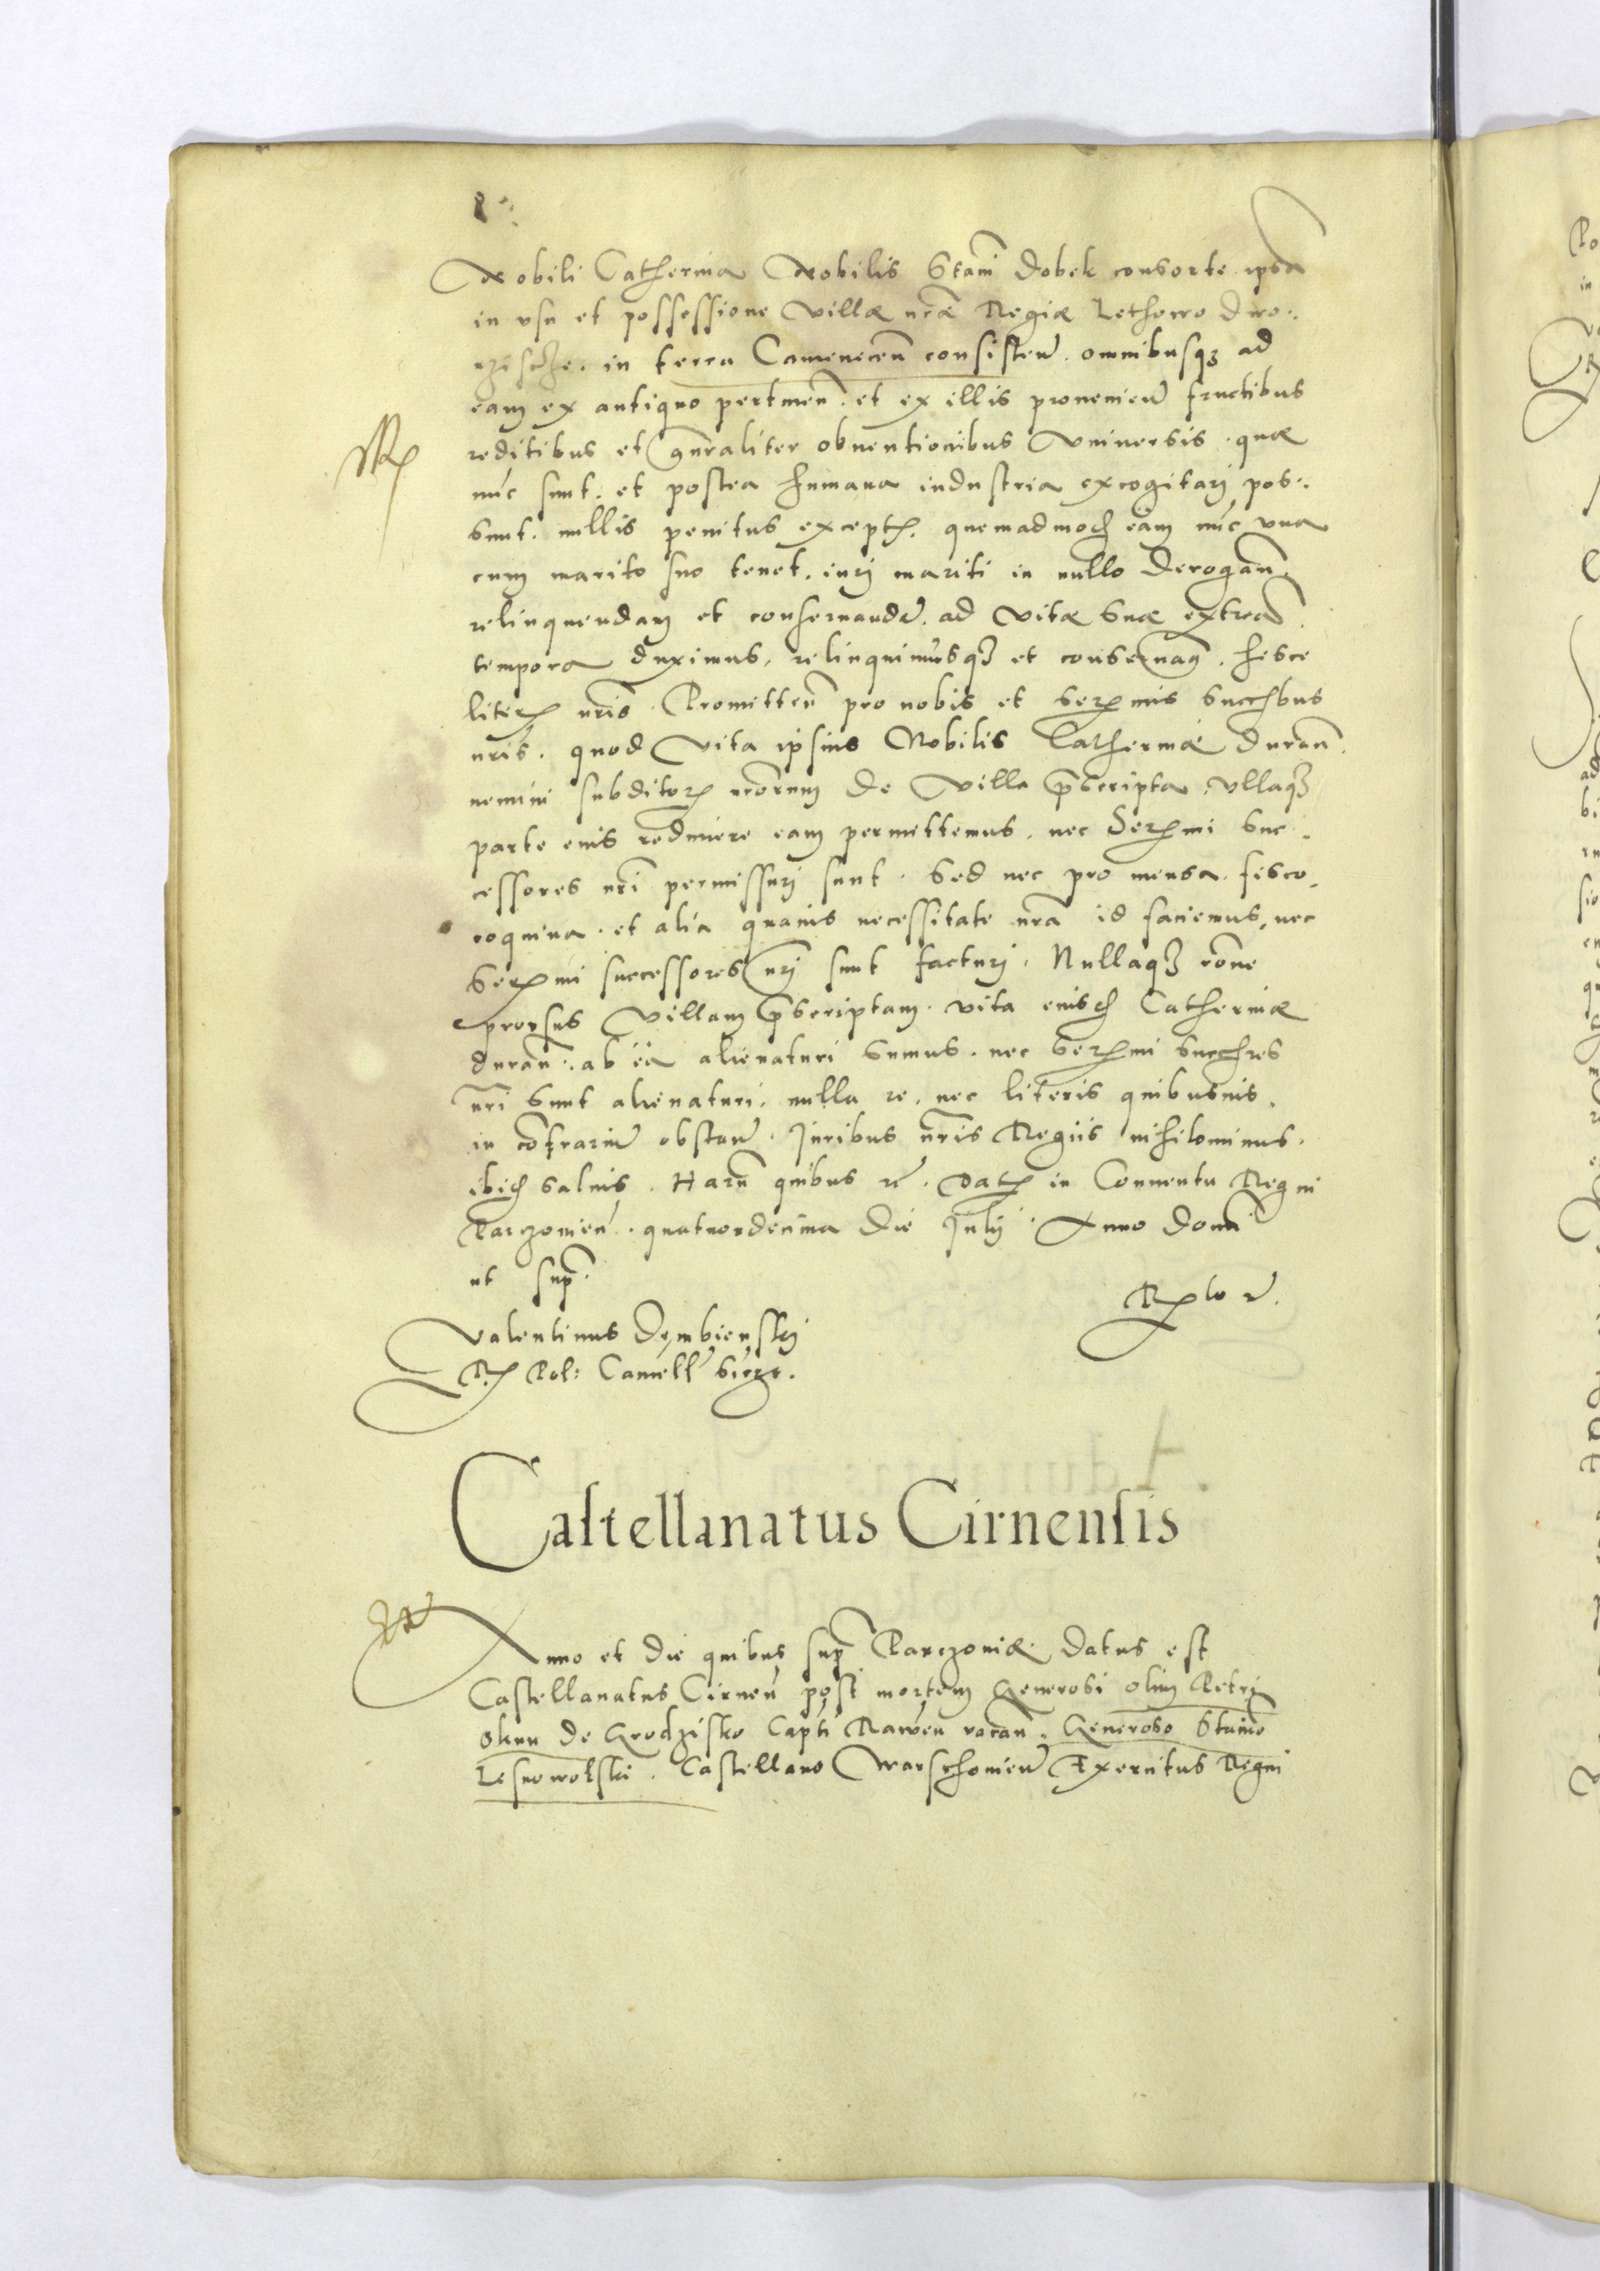 Nobili Catherina Nobilis Stani Dobek consorte ipsa
in usu et possessione Villæ nrae Regiæ Lethowo dwo:
in terra Camenecen consisten. omnibusq3 ad
eam ex antiquo pertinen. et ex illis provenien fructibus
reditibus et gnraliter obventionibus Universis. quæ
nuc sunt. et postea humana industria excogitarj pos:
sunt. nullis penitus except. quemadmod eam nuc una
cum marito suo tenet. iurj mariti in nullo Derogan
relinquendam et conservand. ad Vitæ suæ extrea
tempora duximus. relinquimusq3 et conservam. hisce
liter nris. Promitten pro nobis et Sermis Succbus
nris. quod Vita ipsius Nobilis Catherinæ Duran.
nemini subditor nrorum de Villa pscripta. Ullaq3
parte eius redimere eam permittemus. nec Sermi Suc:
cessores nri permissurj sunt. Sed nec pro mensa. fisco,
coquina. et alia quavis necessitate nra id faciemus, nec
Sermi successores nrj sunt facturj. Nullaq3 rone
prorsus Villam pscriptam. vita eiusd Catherinæ
duran. ab ea alienaturi sumus. nec Sermi Succres
nri sunt alienaturi. nulla re. nec literis quibusvis.
in contrariu obstan. Juribus nris Regiis nihilominus.
ibid salvis. Haru quibus rc. Dat in Conventu Regni
Parczovien. quatuordecima die Julij. Anno Domi
ut sup.
Rlo r.
Valentinus Dembienskj
R Pol: Cancell
Castellanatus Cirnensis
Anno et die quibus sup Parczoviæ Datus est
Castellanatus Cirnen post mortem Generosi olim Petrj
Okun de Grodzisko Capti Rawen vacan. Generoso Stanio
Lesnowolski. Castellano Warschovien Exercitus Regni